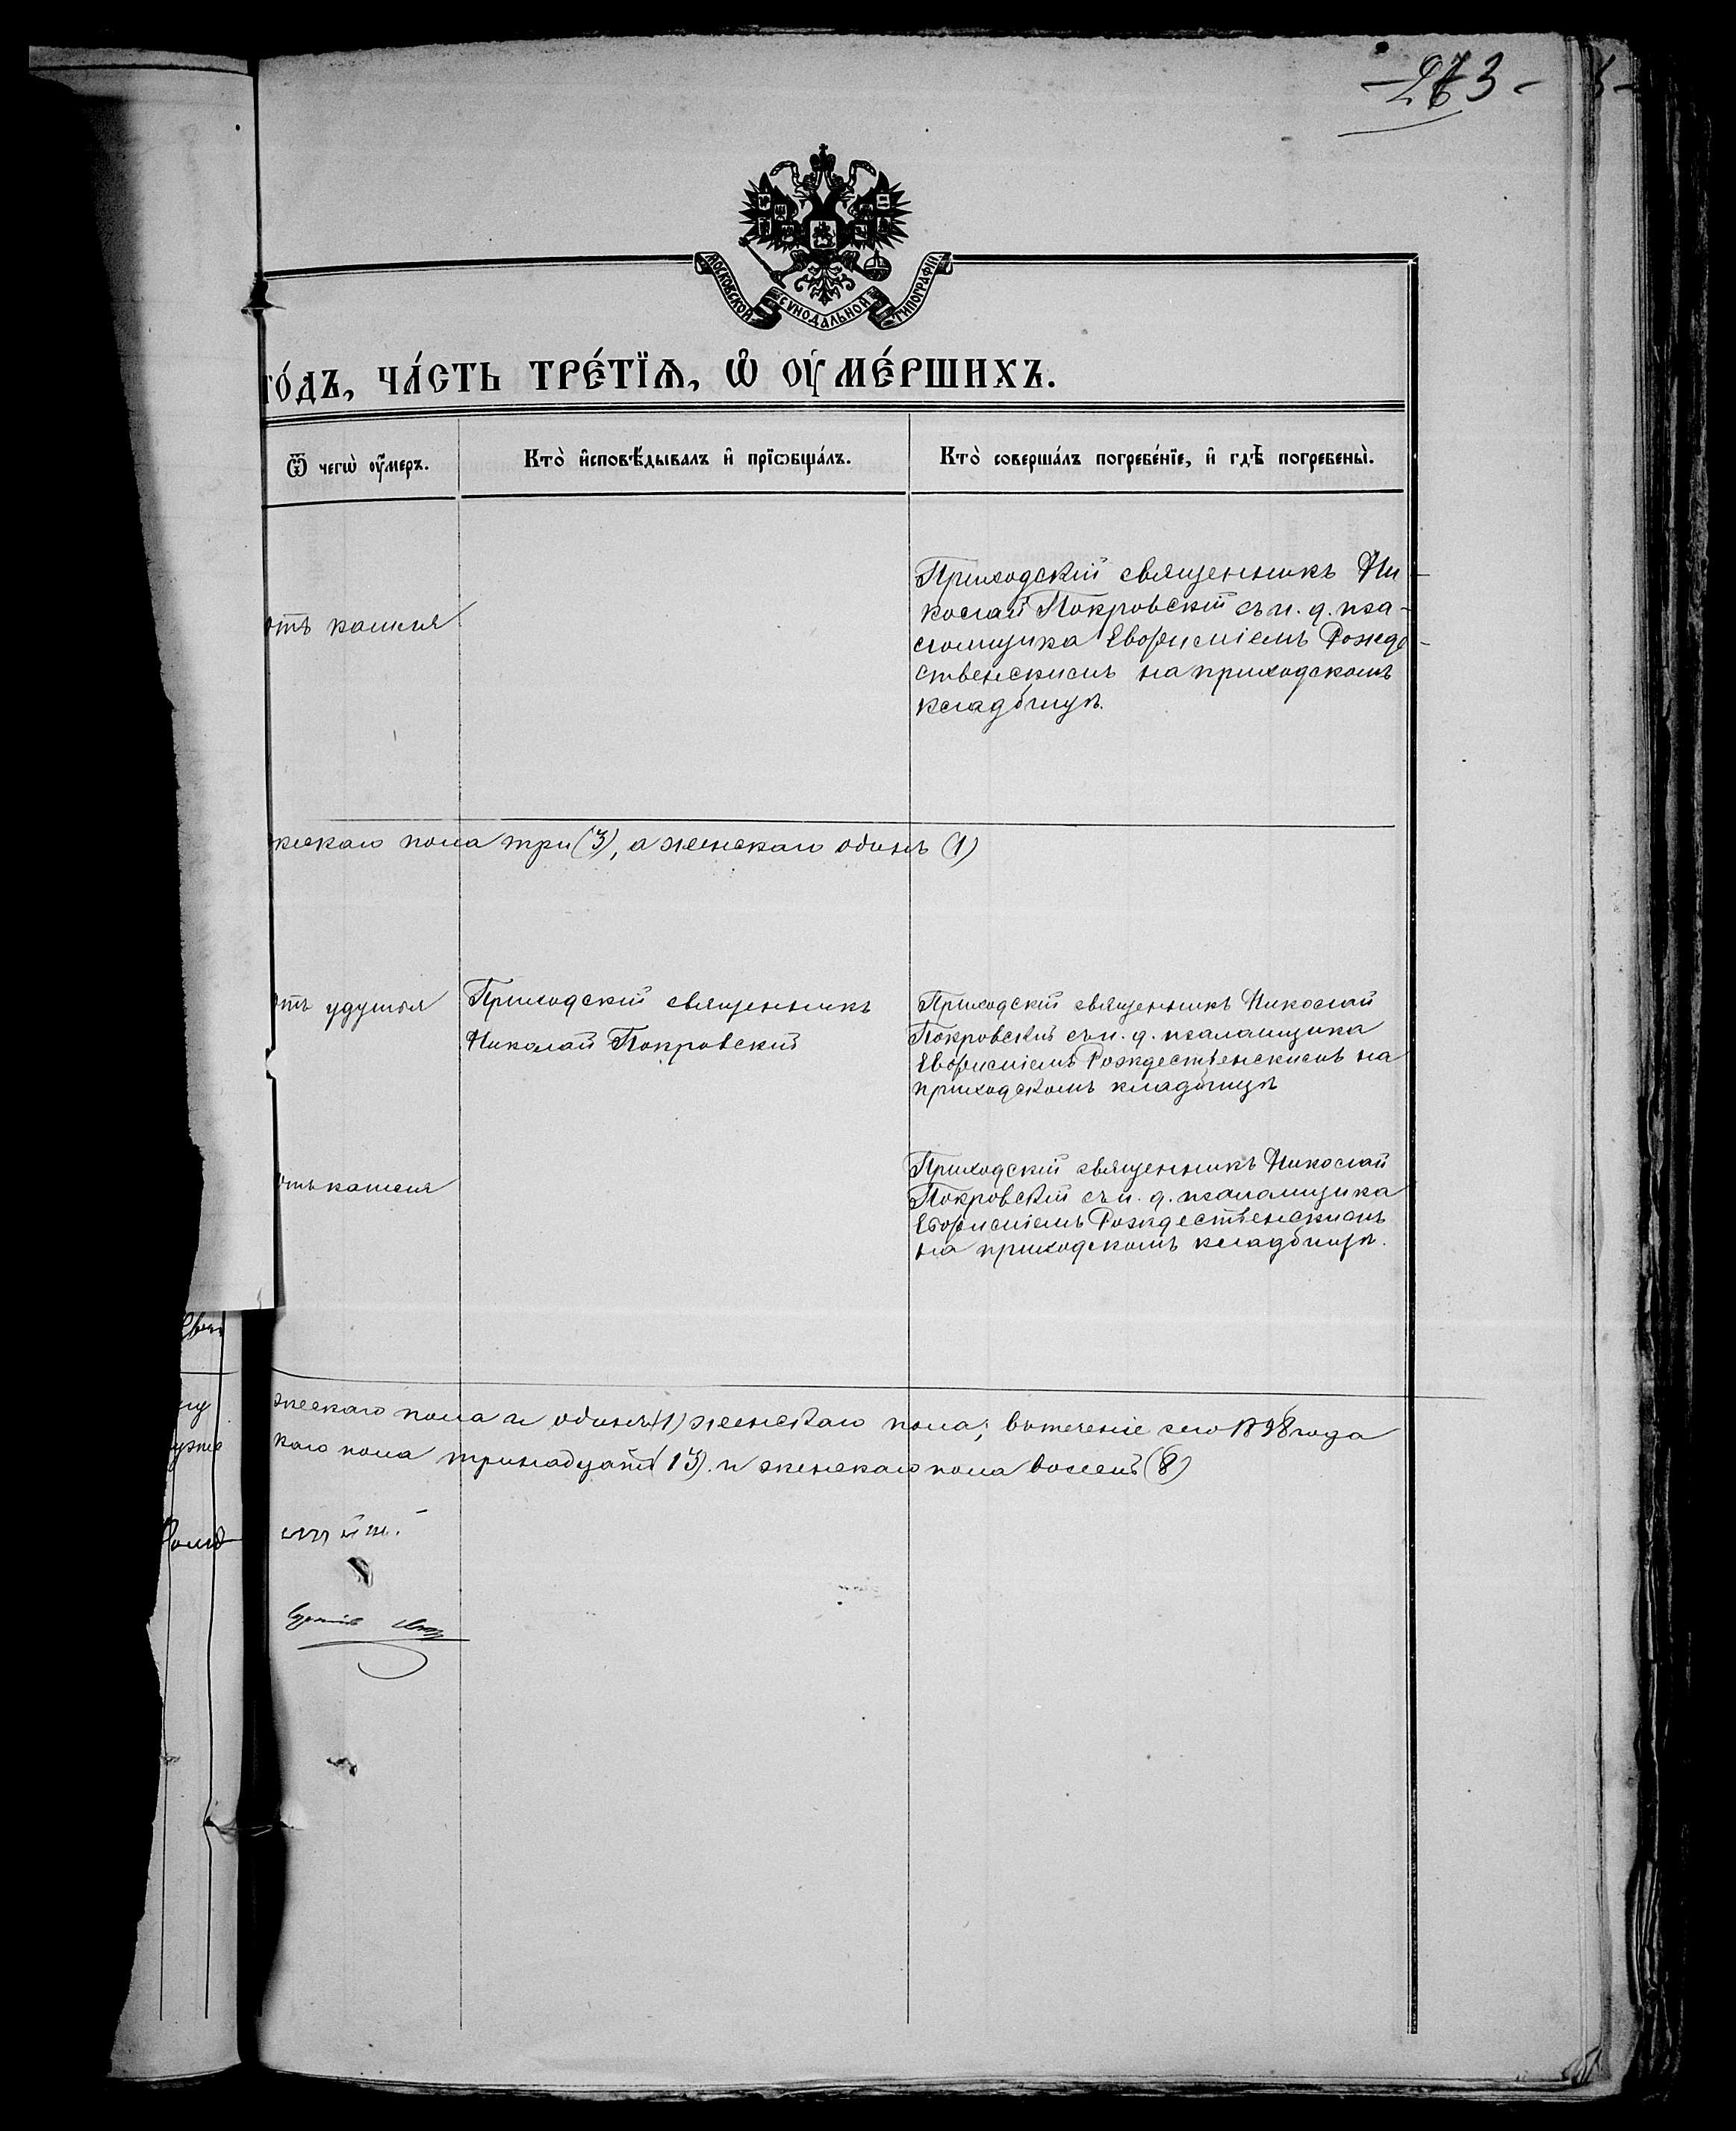 273
МОСКОВСКОЙ СѴНОДАЛЬНОЙ ТИПОГРАФІИ
го́дъ, ча́сть тре́тїѧ, ѡ҆ ᲂу҆ме́ршихъ.
Ѿ чегѡ̀ ᲂу҆́меръ.
Кто̀ и҆сповѣ́дывалъ и҆ прїѻбща́лъ.
Кто̀ соверша́лъ погребе́нїе, и҆ гдѣ̀ погребены̀.
отъ кашля
Приходскій священникъ Ни-
колай Покровскій съ и. д. пса-
ломщика Евѳиміемъ Рожде-
ственскимъ на приходскомъ
кладбищѣ.
жескаго пола три (3), а женскаго одинъ (1)
отъ удушья
Приходскій священникъ
Николай Покровскій
Приходскій священникъ Николай
Покровскій съ и. д. псаломщика
Евѳиміемъ Рождественскимъ на
приходскомъ кладбищѣ
отъ кашля
Приходскій священникъ Николай
Покровскій съ и. д. псаломщика
Евѳиміемъ Рождественскимъ
на приходскомъ кладбищѣ.
жескаго пола и одинъ (1) женскаго пола; въ теченіе сего 1898 года
каго пола тринадцать (13) и женскаго пола восемь (8)